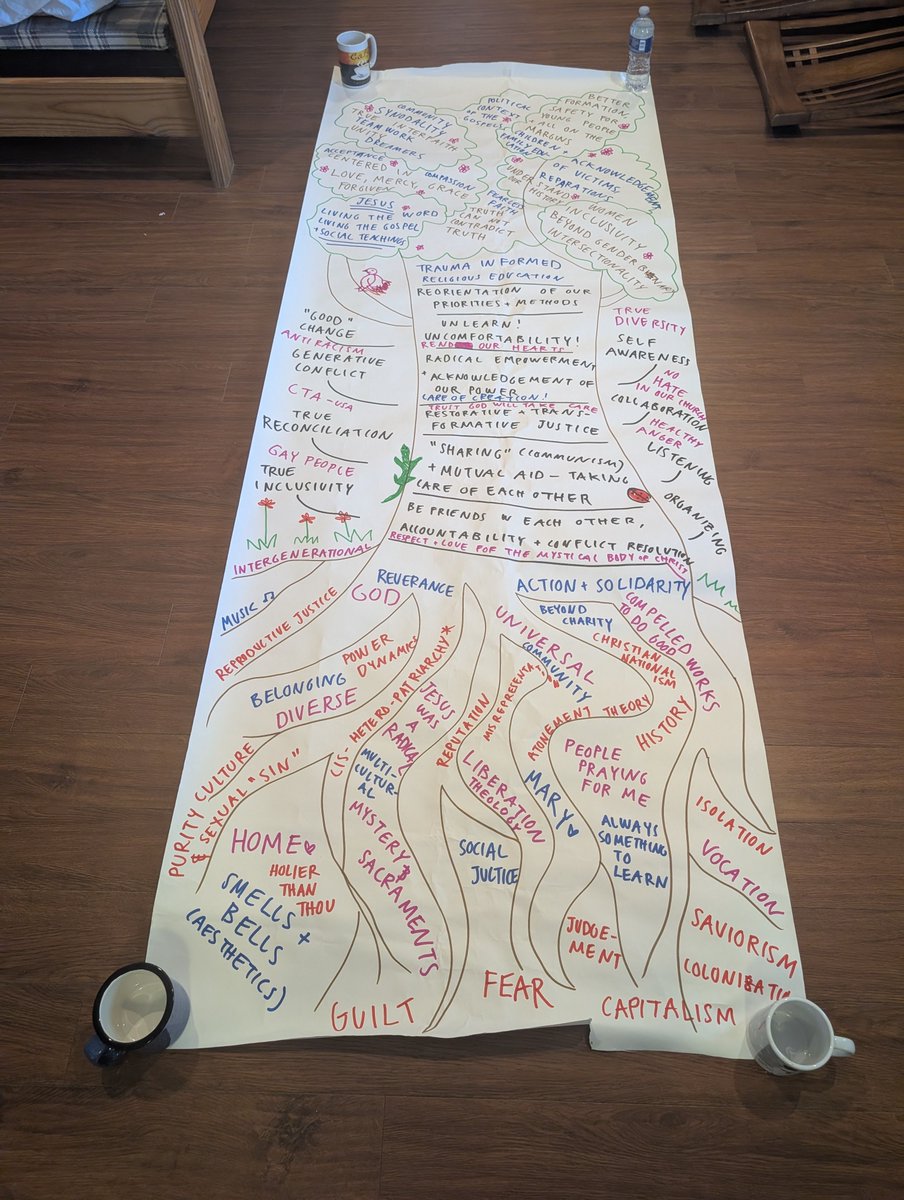 COMMUNITY
SYNODALITY
TRUE INTERFAITH
TEAMWORK
UNITY
DREAMERS
ACCEPTANCE
CENTERED IN
COMPASSION
LOVE, MERCY, GRACE
FORGIVEN
JESUS
LIVING THE WORD
LIVING THE GOSPEL
+ SOCIAL TEACHINGS
POLITICAL
CONTEXT
OF THE
GOSPELS
BETTER
FORMATION
SAFETY FOR
YOUNG PEOPLE
+ ALL ON THE
MARGINS
CHILDREN +
FAMILY
ACKNOWLEDGEMENT
OF VICTIMS,
REPARATIONS
UNDERSTAND
OUR HISTORY
FEARLESS
FAITH
TRUTH
CAN NOT
CONTRADICT
TRUTH
WOMEN
INCLUSIVITY
BEYOND GENDER BINARY
INTERSECTIONALITY
TRAUMA INFORMED
RELIGIOUS EDUCATION
REORIENTATION OF OUR
PRIORITIES + METHODS
UNLEARN!
UNCOMFORTABILITY!
REND OUR HEARTS
RADICAL EMPOWERMENT
+ ACKNOWLEDGEMENT OF
OUR POWER
CARE OF CREATION!
TRUST GOD WILL TAKE CARE
RESTORATIVE + TRANS-
FORMATIVE JUSTICE
"SHARING" (COMMUNISM)
+ MUTUAL AID - TAKING
CARE OF EACH OTHER
BE FRIENDS W EACH OTHER,
ACCOUNTABILITY + CONFLICT RESOLUTION
RESPECT + LOVE FOF THE MYSTICAL BODY OF CHRIST
"GOOD"
CHANGE
ANTIRACISM
GENERATIVE
CONFLICT
CTA-USA
TRUE
RECONCILIATION
GAY PEOPLE
TRUE
INCLUSIVITY
INTERGENERATIONAL
TRUE
DIVERSITY
SELF
AWARENESS
NO
HATE
IN OUR CHURCH
COLLABORATION
HEALTHY
ANGER
LISTENING
ORGANIZING
MUSIC ♫
REPRODUCTIVE JUSTICE
REVERANCE
GOD
ACTION + SOLIDARITY
BEYOND
CHARITY
COMPELLED WORKS
TO DO GOOD
POWER
DYNAMICS
BELONGING
DIVERSE
CIS-HETERO-PATRIARCHY*
UNIVERSAL
COMMUNITY
CHRISTIAN
NATIONAL
ISM
JESUS
WAS
A
RADICAL
REPUTATION
ATONEMENT THEORY
HISTORY
PURITY CULTURE
& SEXUAL "SIN"
MULTI-
CULTUR-
AL
MYSTERY &
SACRAMENTS
LIBERATION
THEOLOGY
MARY ♡
PEOPLE
PRAYING
FOR ME
ISOLATION
VOCATION
HOME ♡
HOLIER
THAN
THOU
SMELLS +
BELLS
(AESTHETICS)
SOCIAL
JUCTICE
ALWAYS
SOMETHING
TO
LEARN
JUDGE-
MENT
SAVIORISM
GUILT
FEAR
CAPITALISM